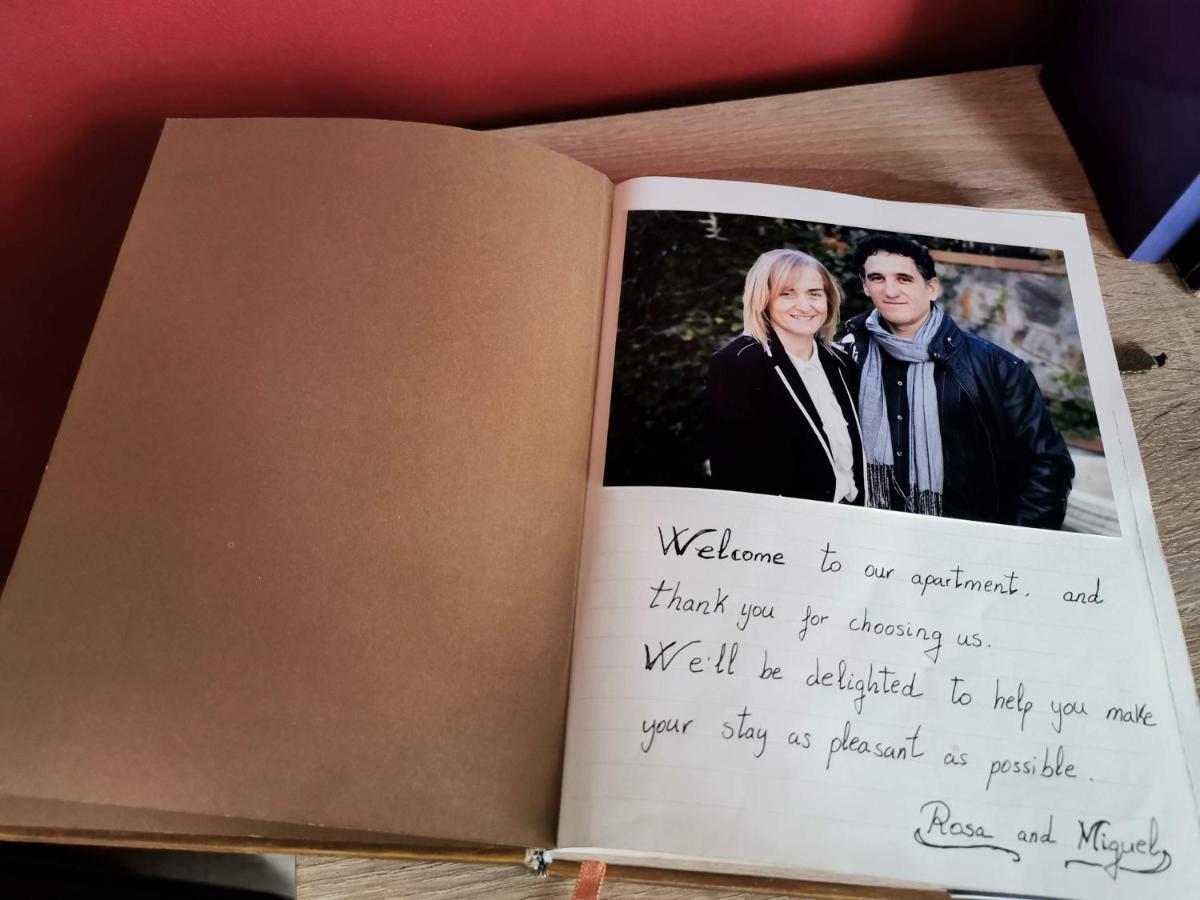 Welcome to our apartment, and
thank you for choosing us.
We'll be delighted to help you make
your stay as pleasant as possible.
Rosa and Miguel